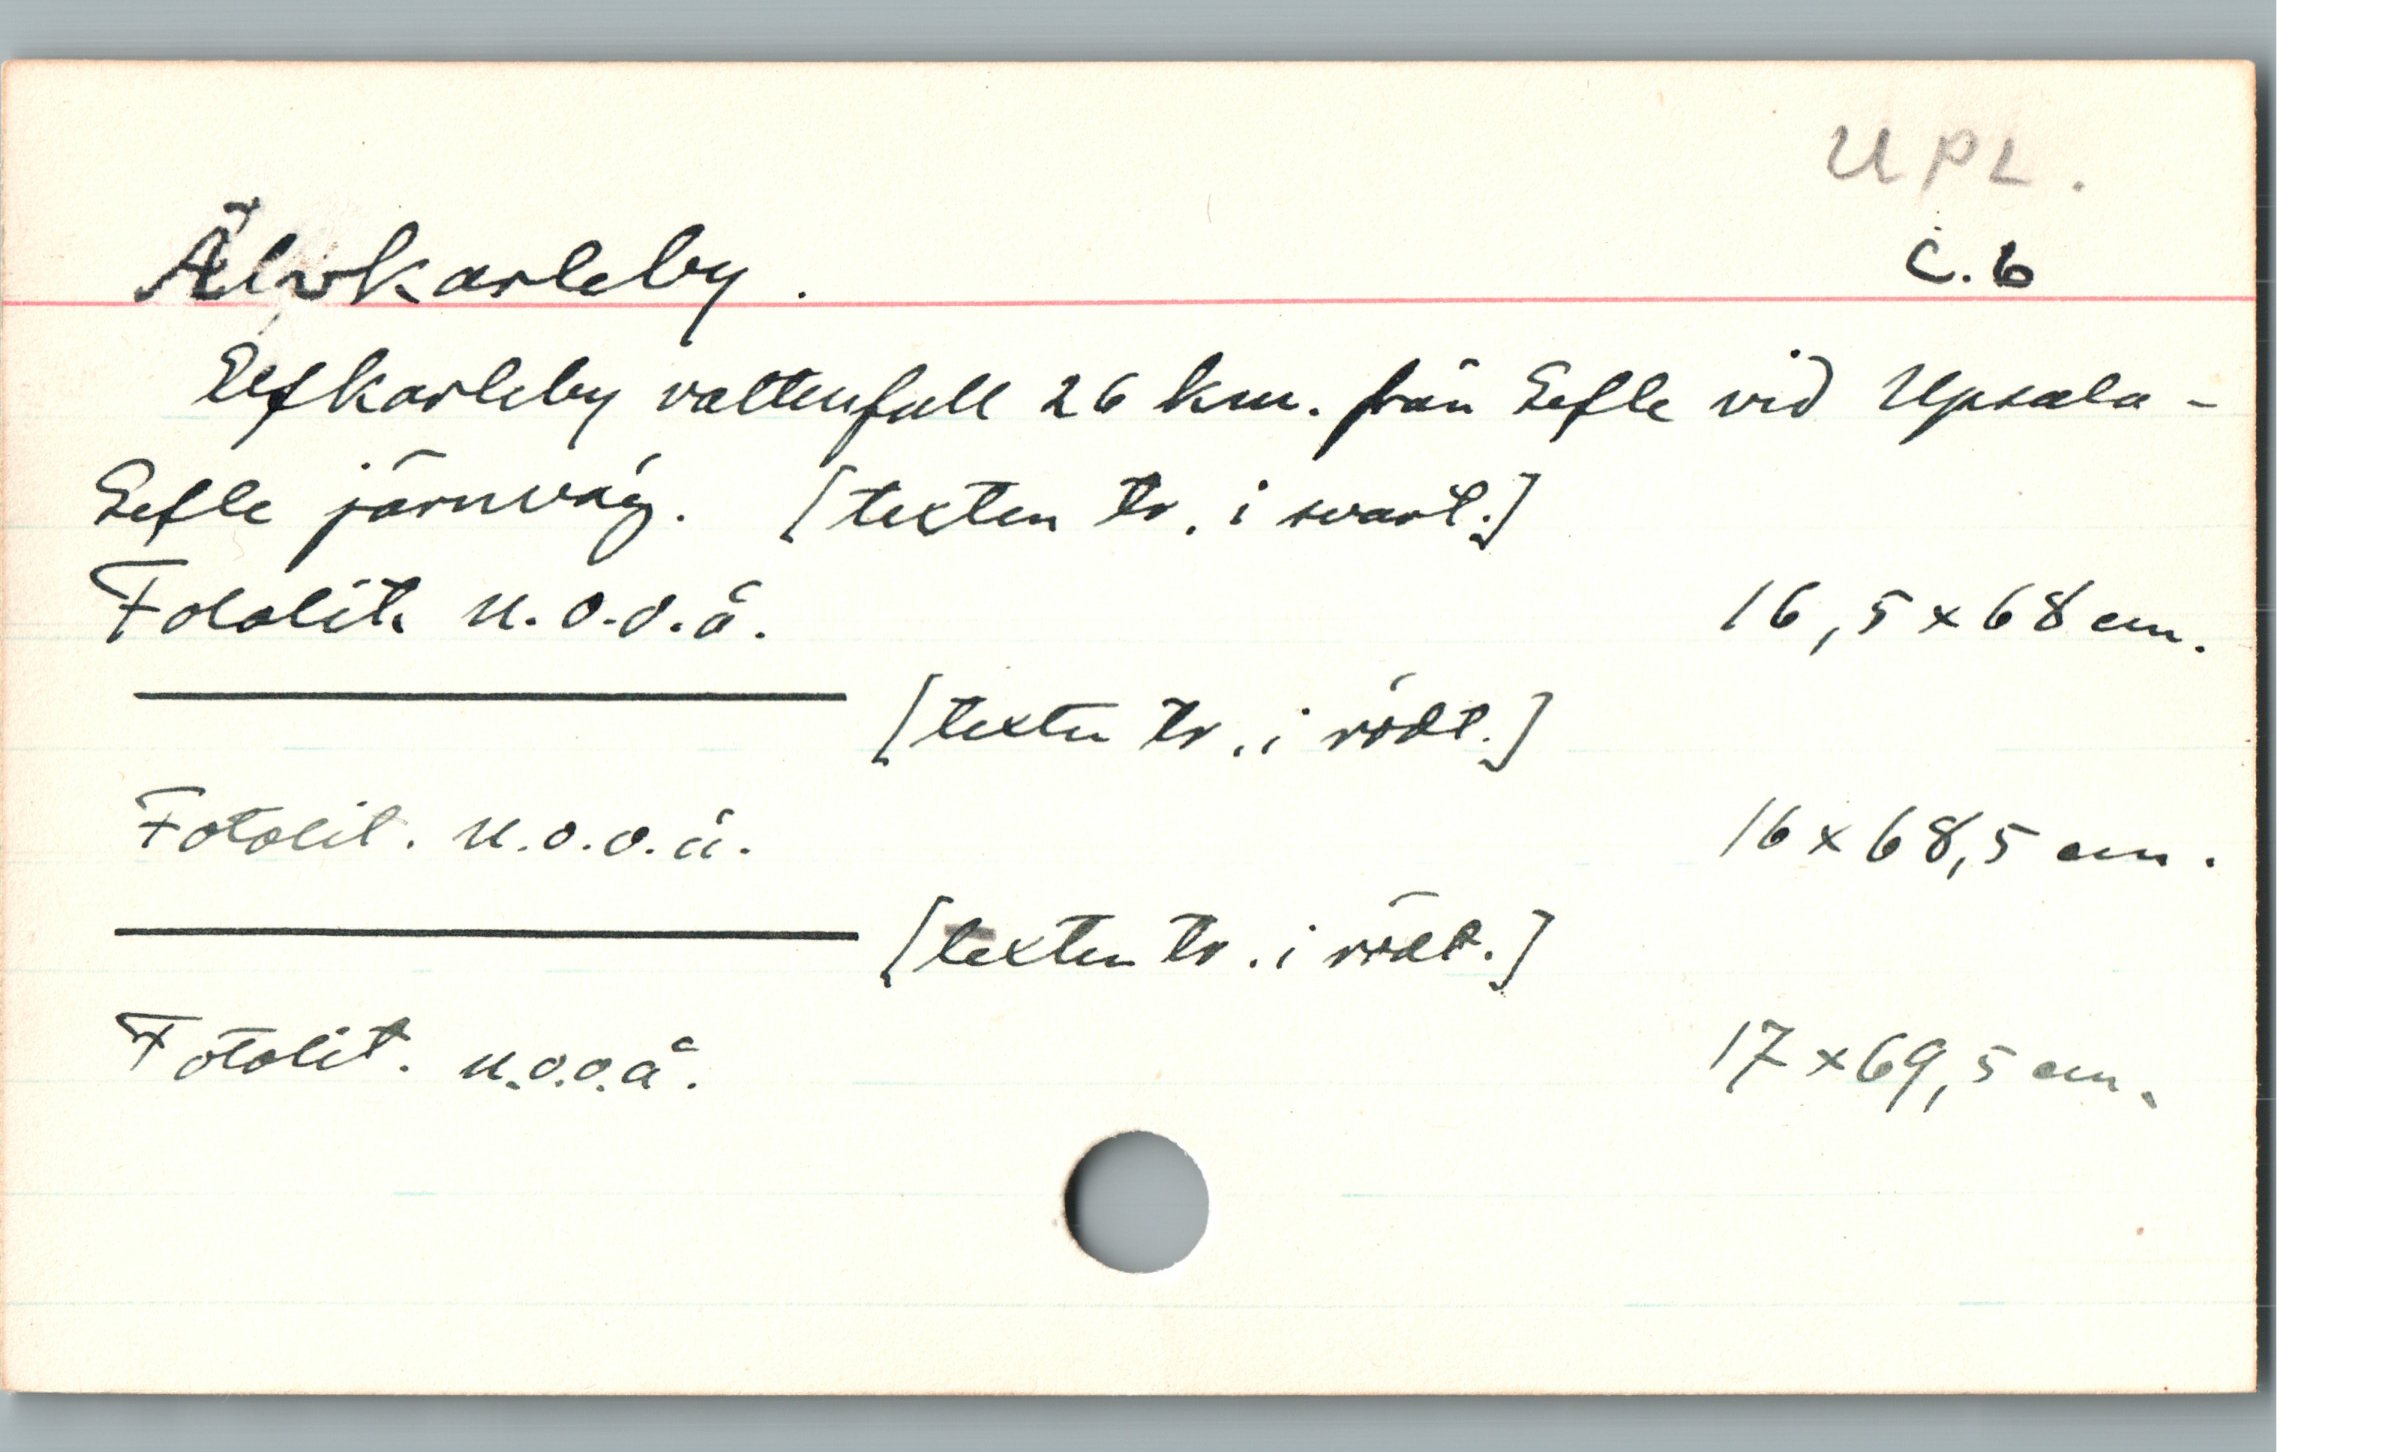 UPL.
Älvkarleby.
C.6
Elfkarleby vattenfall 26 km. från Gefle vid Upsala-
Gefle järnväg. [texten tr. i svart.]
Fotolit. u.o.o.å. 16,5 x 68 cm.
[texten tr. i rödt.]
Fotolit. u.o.o.å. 16 x 68,5 cm.
[texten tr. i rödt.]
Fotolit. u.o.o.å. 17 x 69,5 cm.